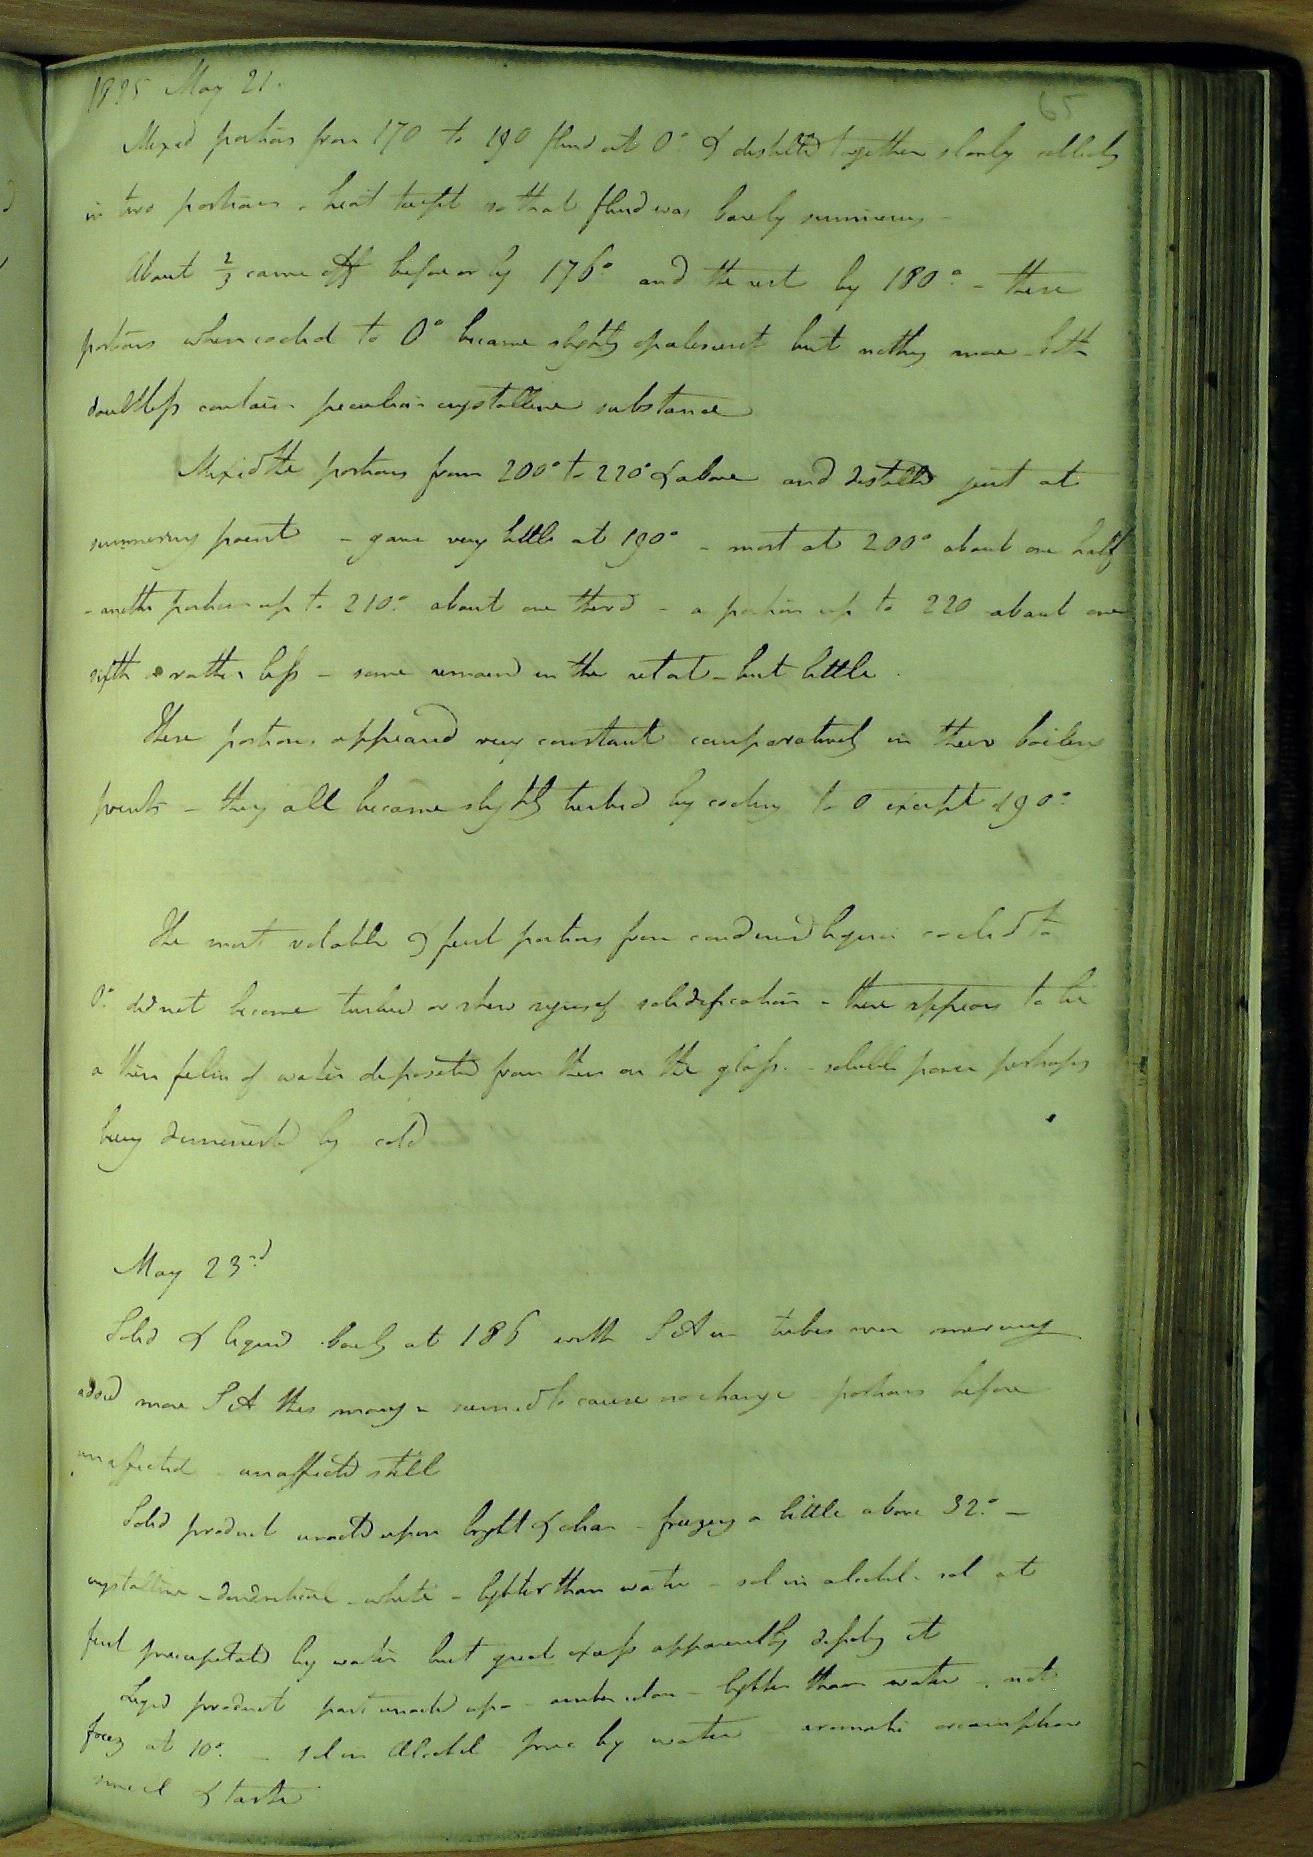 1825 May 21.
65
Mixed portions from 170 to 190 fluid at 0° & distilled together slowly collecting
in two portions - heat kept so that fluid was barely simmering -
About 2/3 came off before or by 176° and the rest by 180° - these
portions when cooled to 0° became slightly opalescent but nothing more - both
doubtless contain peculiar crystalline substance
Mixed the portions from 200° to 220° & above and distilled just at
simmering point - gave very little at 190° - most at 200° about one half
- another portion up to 210° about one third - a portion up to 220 about one
sixth or rather less - some remained in the retort - but little.
These portions appeared very constant comparatively in their boiling
points - they all became slightly turbid by cooling to 0 except 190°
The most volatile & first portions from condensed liquor cooled to
0° did not become turbid or shew signs of solidification - there appears to be
a thin film of water deposited from them on the glass - soluble power perhaps
being diminished by cold
May 23rd
Solid & liquid boily at 186 with S A in tubes over mercury
added more S A this morng - seemed to cause no change portions before
unaffected unaffected still
Solid product unacted upon bright & clear - freezing a little above 32° -
crystalline - dendritical - white - lighter than water - sol in alcohol - sol at
first precipitated by water but great excess apparently
Liquid product part unacted upon - lighter than water - not
freez at 10° - sol in Alcohol prec by water aromatic
smell & taste